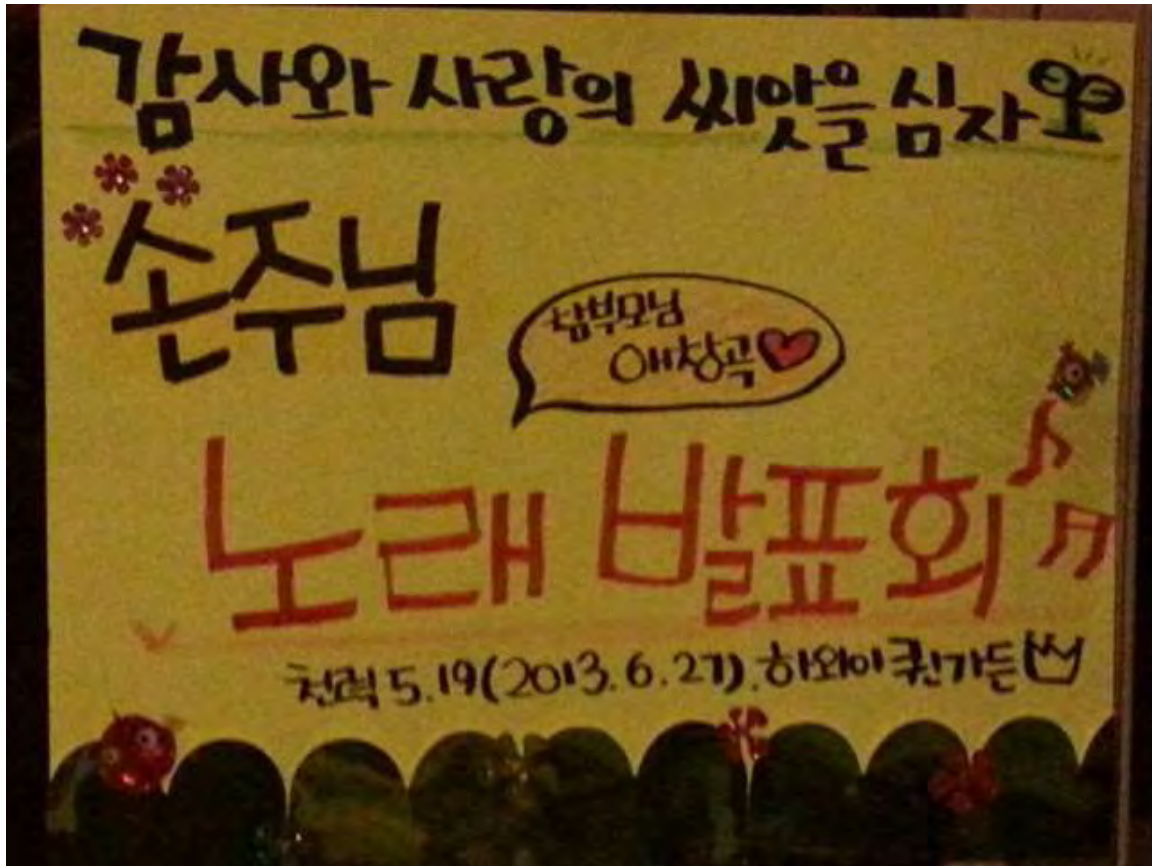 감사와 사랑의 씨앗을 심자
손주님
참부모님
애창곡
노래 발표회
천력 5.19(2013.6.27). 하와이 퀸가든